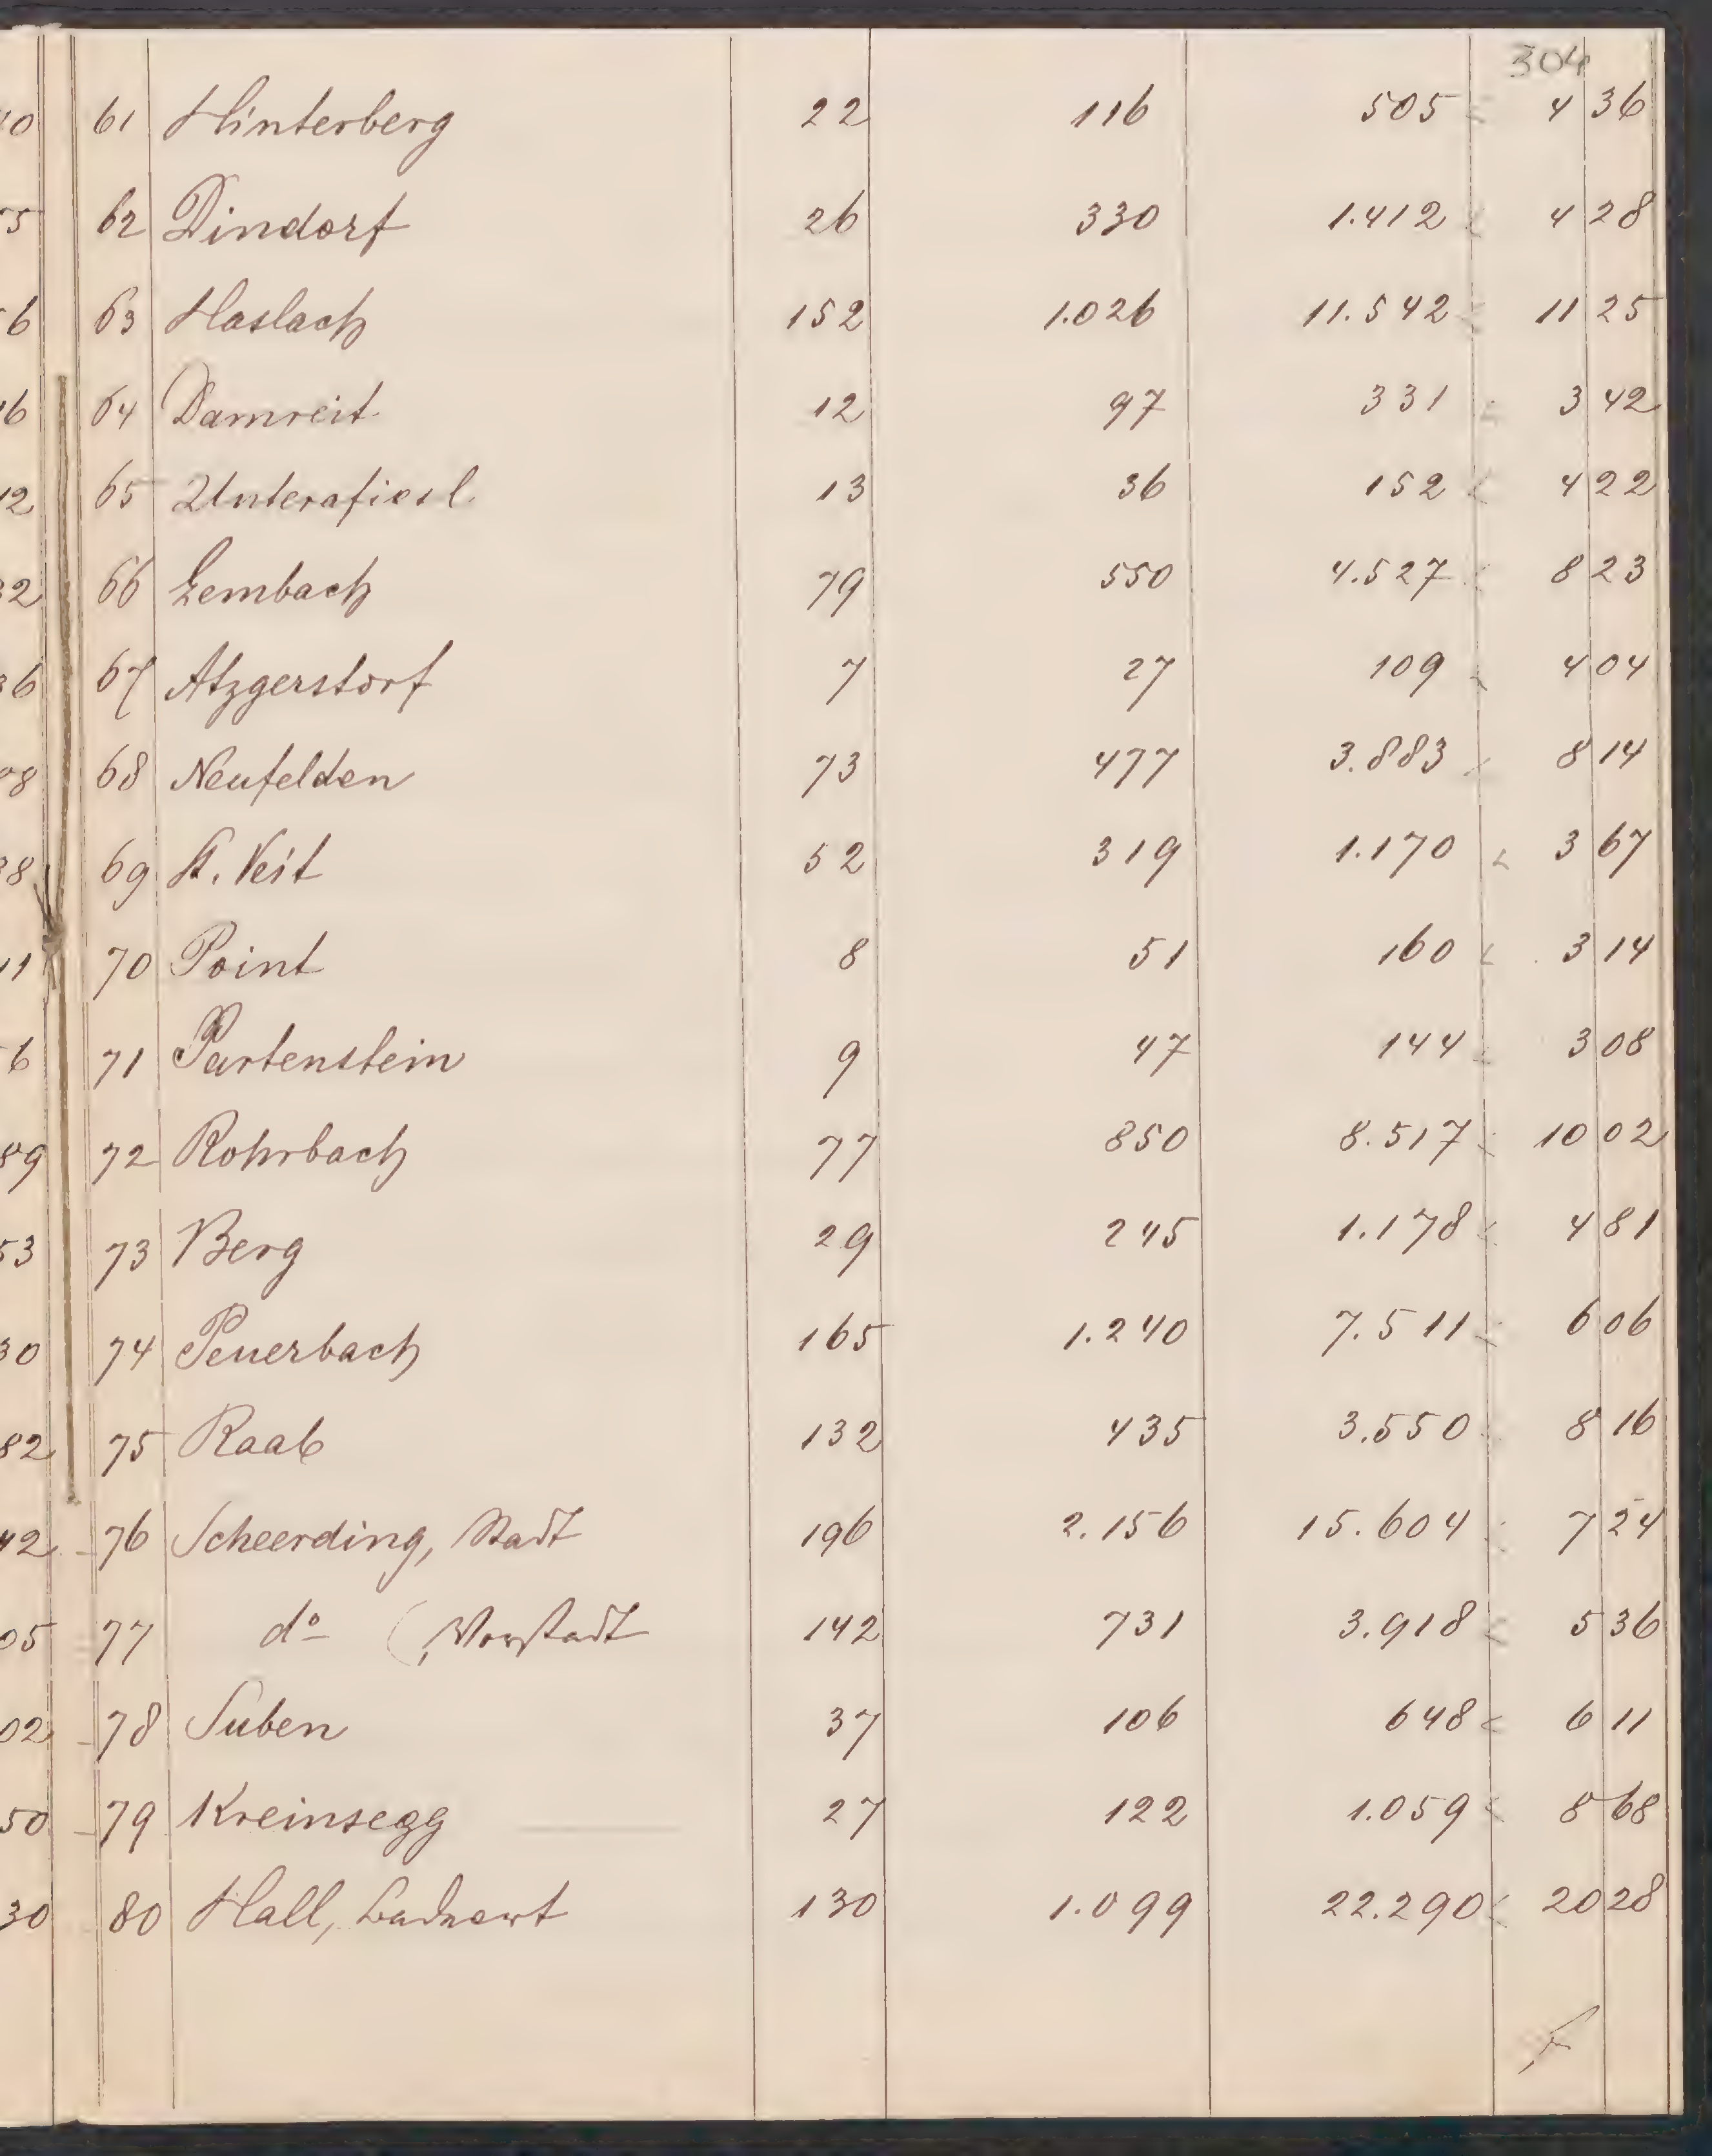 304
61 Hinterberg 22 116 505 4 36
62 Dindorf 26 330 1.412 4 28
63 Haslach 152 1.026 11.542 11 25
64 Damreit 12 97 331 3 42
65 Unterafiesl 13 36 152 4 22
66 Lembach 79 550 4.527 8 23
67 Atzgerstorf 7 27 109 4 04
68 Neufelden 73 477 3.883 8 14
69 St. Veit 52 319 1.170 3 67
70 Point 8 51 160 3 14
71 Partenstein 9 47 144 3 08
72 Rohrbach 77 850 8.517 10 02
73 Berg 29 245 1.178 4 81
74 Peuerbach 165 1.240 7.511 6 06
75 Raab 132 435 3.550 8 16
76 Scheerding, Stadt 196 2.156 15.604 7 24
77 do , Vorstadt 142 731 3.918 5 36
78 Suben 37 106 648 6 11
79 Kreinsegg 27 122 1.059 8 68
80 Hall, Badeort 130 1.099 22.290 20 28